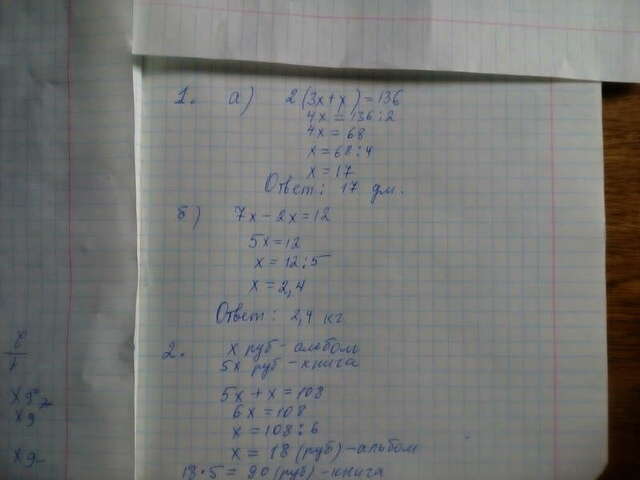 1. а) 2(3x+x)=136
4x=136:2
4x=68
x=68:4
x=17
Ответ: 17 дм.
б) 7x-2x=12
5x=12
x=12:5
x=2,4
Ответ: 2,4 кг
2. x руб-альбом
5x руб-книга
5x+x=108
6x=108
x=108:6
x=18(руб)-альбом
18·5=90(руб)-книга